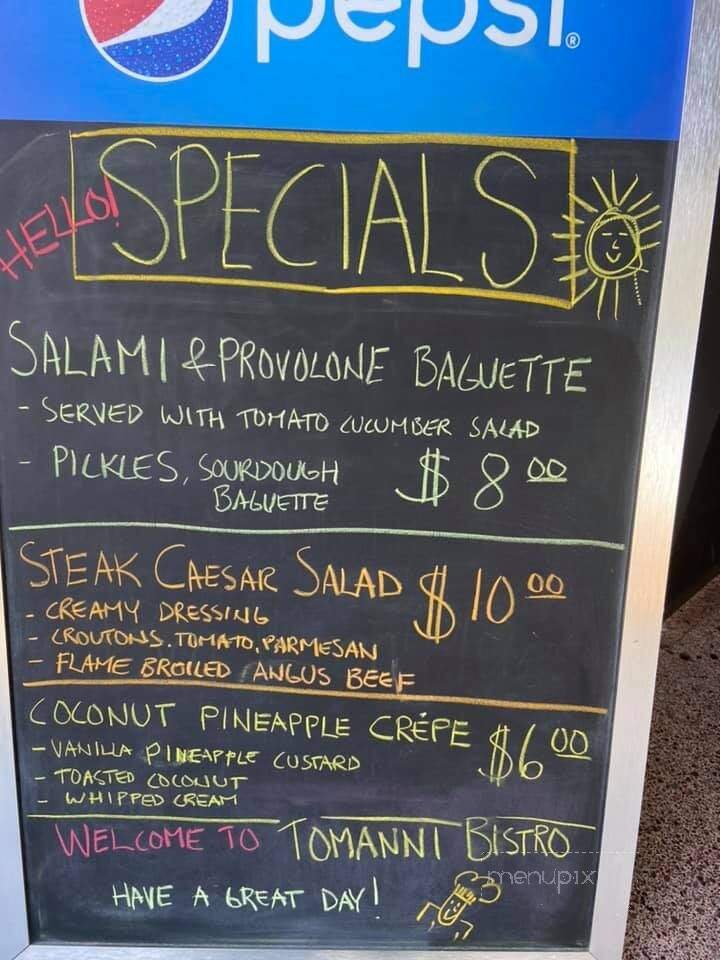 pepsi®
HELLO!
SPECIALS
SALAMI & PROVOLONE BAGUETTE
- SERVED WITH TOMATO CUCUMBER SALAD
- PICKLES, SOURDOUGH BAGUETTE $8.00
STEAK CAESAR SALAD $10.00
- CREAMY DRESSING
- CROUTONS, TOMATO, PARMESAN
- FLAME BROILED ANGUS BEEF
COCONUT PINEAPPLE CRÊPE $6.00
- VANILLA PINEAPPLE CUSTARD
- TOASTED COCONUT
- WHIPPED CREAM
WELCOME TO TOMANNI BISTRO
HAVE A GREAT DAY!
menupix